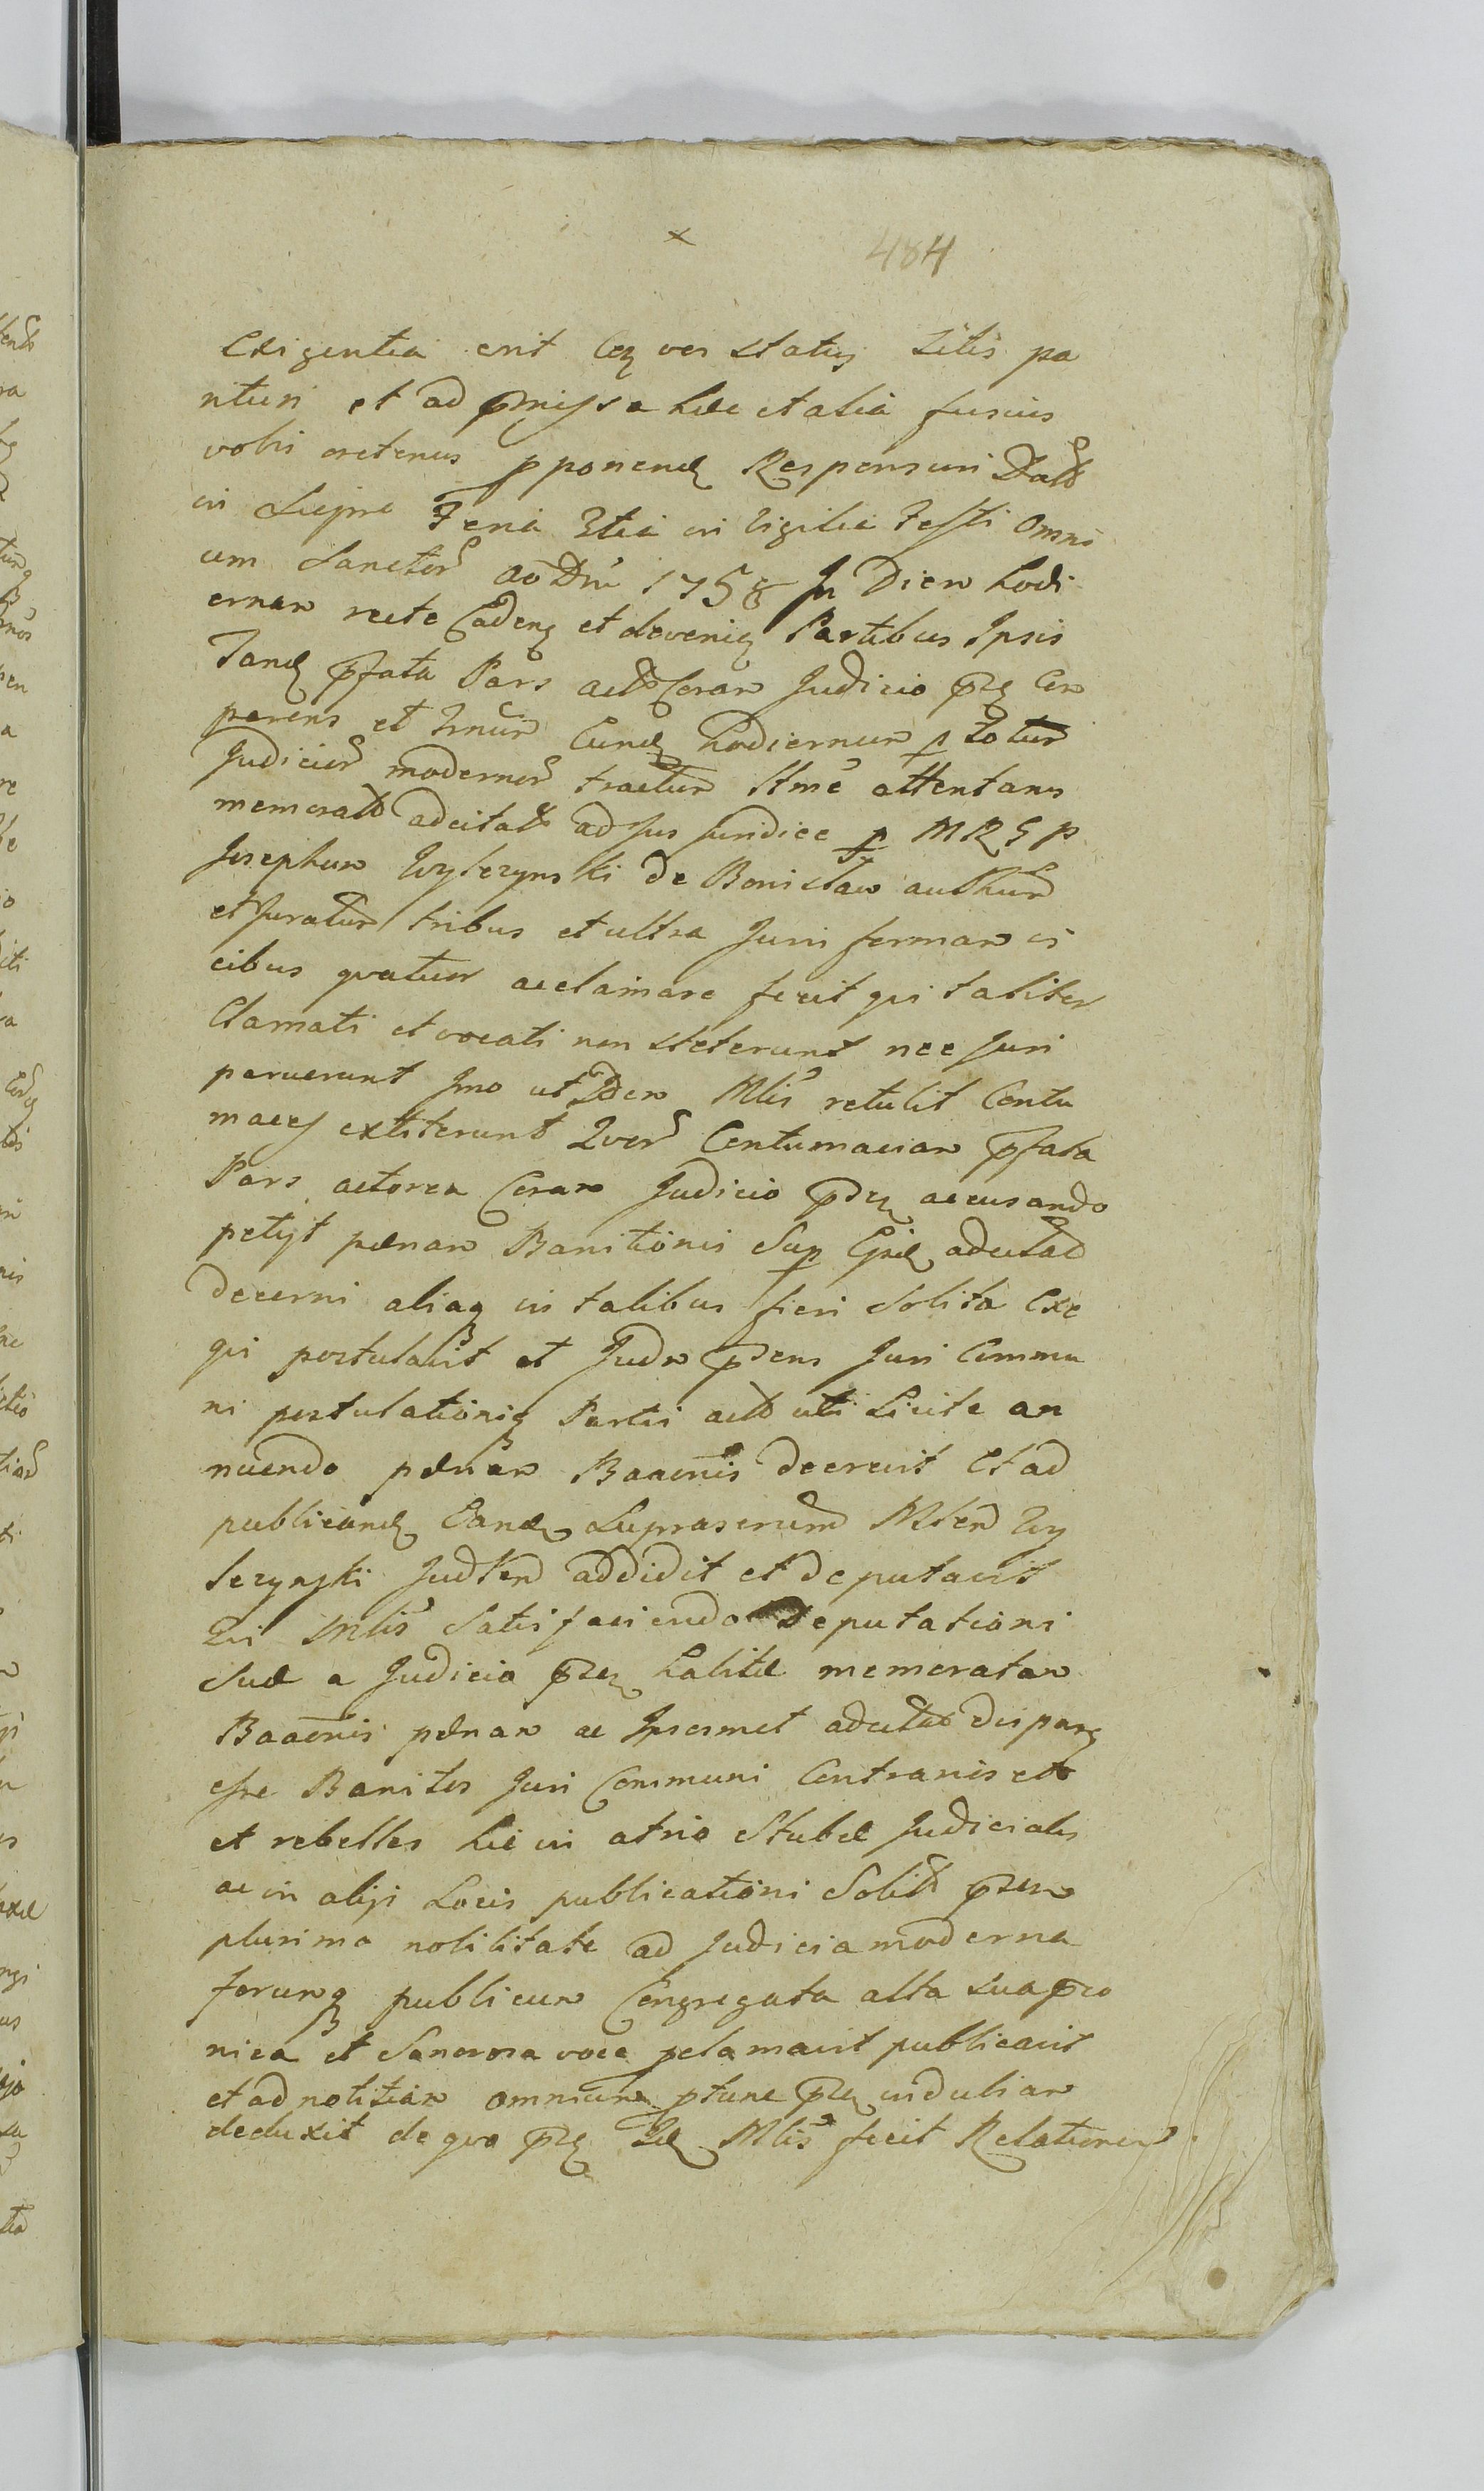 x
484
Exigentia erit Csq ver status Litis pa
rituri et ad pmissa hæc et alia fusius
vobis oretenus pponend Responsuri Datt
in Supra Feria 3tia in Vigilia Festi Omni
um Sanctor Ao Dni 1758 In Diem hodi
ernam recte Cadens et deveniens Partibus Ipsis
Tand pfata Pars act Coram Judicio pnti Com
parens et Trnum Eund hodiernum p totum
Judicior modernor tractum Ittme attentans
memorat adcitat ad Jus Juridice p MRGP
Josephum Wylezynski de Bonislaw authum
et Juratum tribus et ultra Juris formam vi
cibus quatuor acclamare fecit qui taliter
Clamati et vocati non steterunt nec Juri
paruerunt Imo ut Idem Mlis retulit Contu
maces extiterunt Quor Contumaciam pfata
Pars actorea Coram Judicio pnti accusando
petyt pænam Banitionis Sup Ijsd adcitat
decerni aliaq in talibus fieri Solita Exe
qui postulavit et Judm pdens Juri Commu
ni postulationiq Partis act uti Licite an
nuendo pænam Baaonis decrevit Et ad
publicand Eand Supraserium Mlem Wy
lezynski Judlem addidit et deputavit
Qui Mlis Satisfaciendo Deputationi
Suæ a Judicio pnti habitæ memoratam
Baaonis pænam ac Ipsosmet adcitat
esse Banitos Juri Communi Contrarios
et rebelles hic in atrio Stubæ Judicialis
ac in alijs Locis publicationi Solit
plurima nobilitate ad Judicia moderna
forumq publicum Congregata alta sua præco
nica et Sonorosa voce pclamavit publicavit
et ad notitiam omnium ptunc indubiam
deduxit de quo pnti Id Mlis fecit Relationem